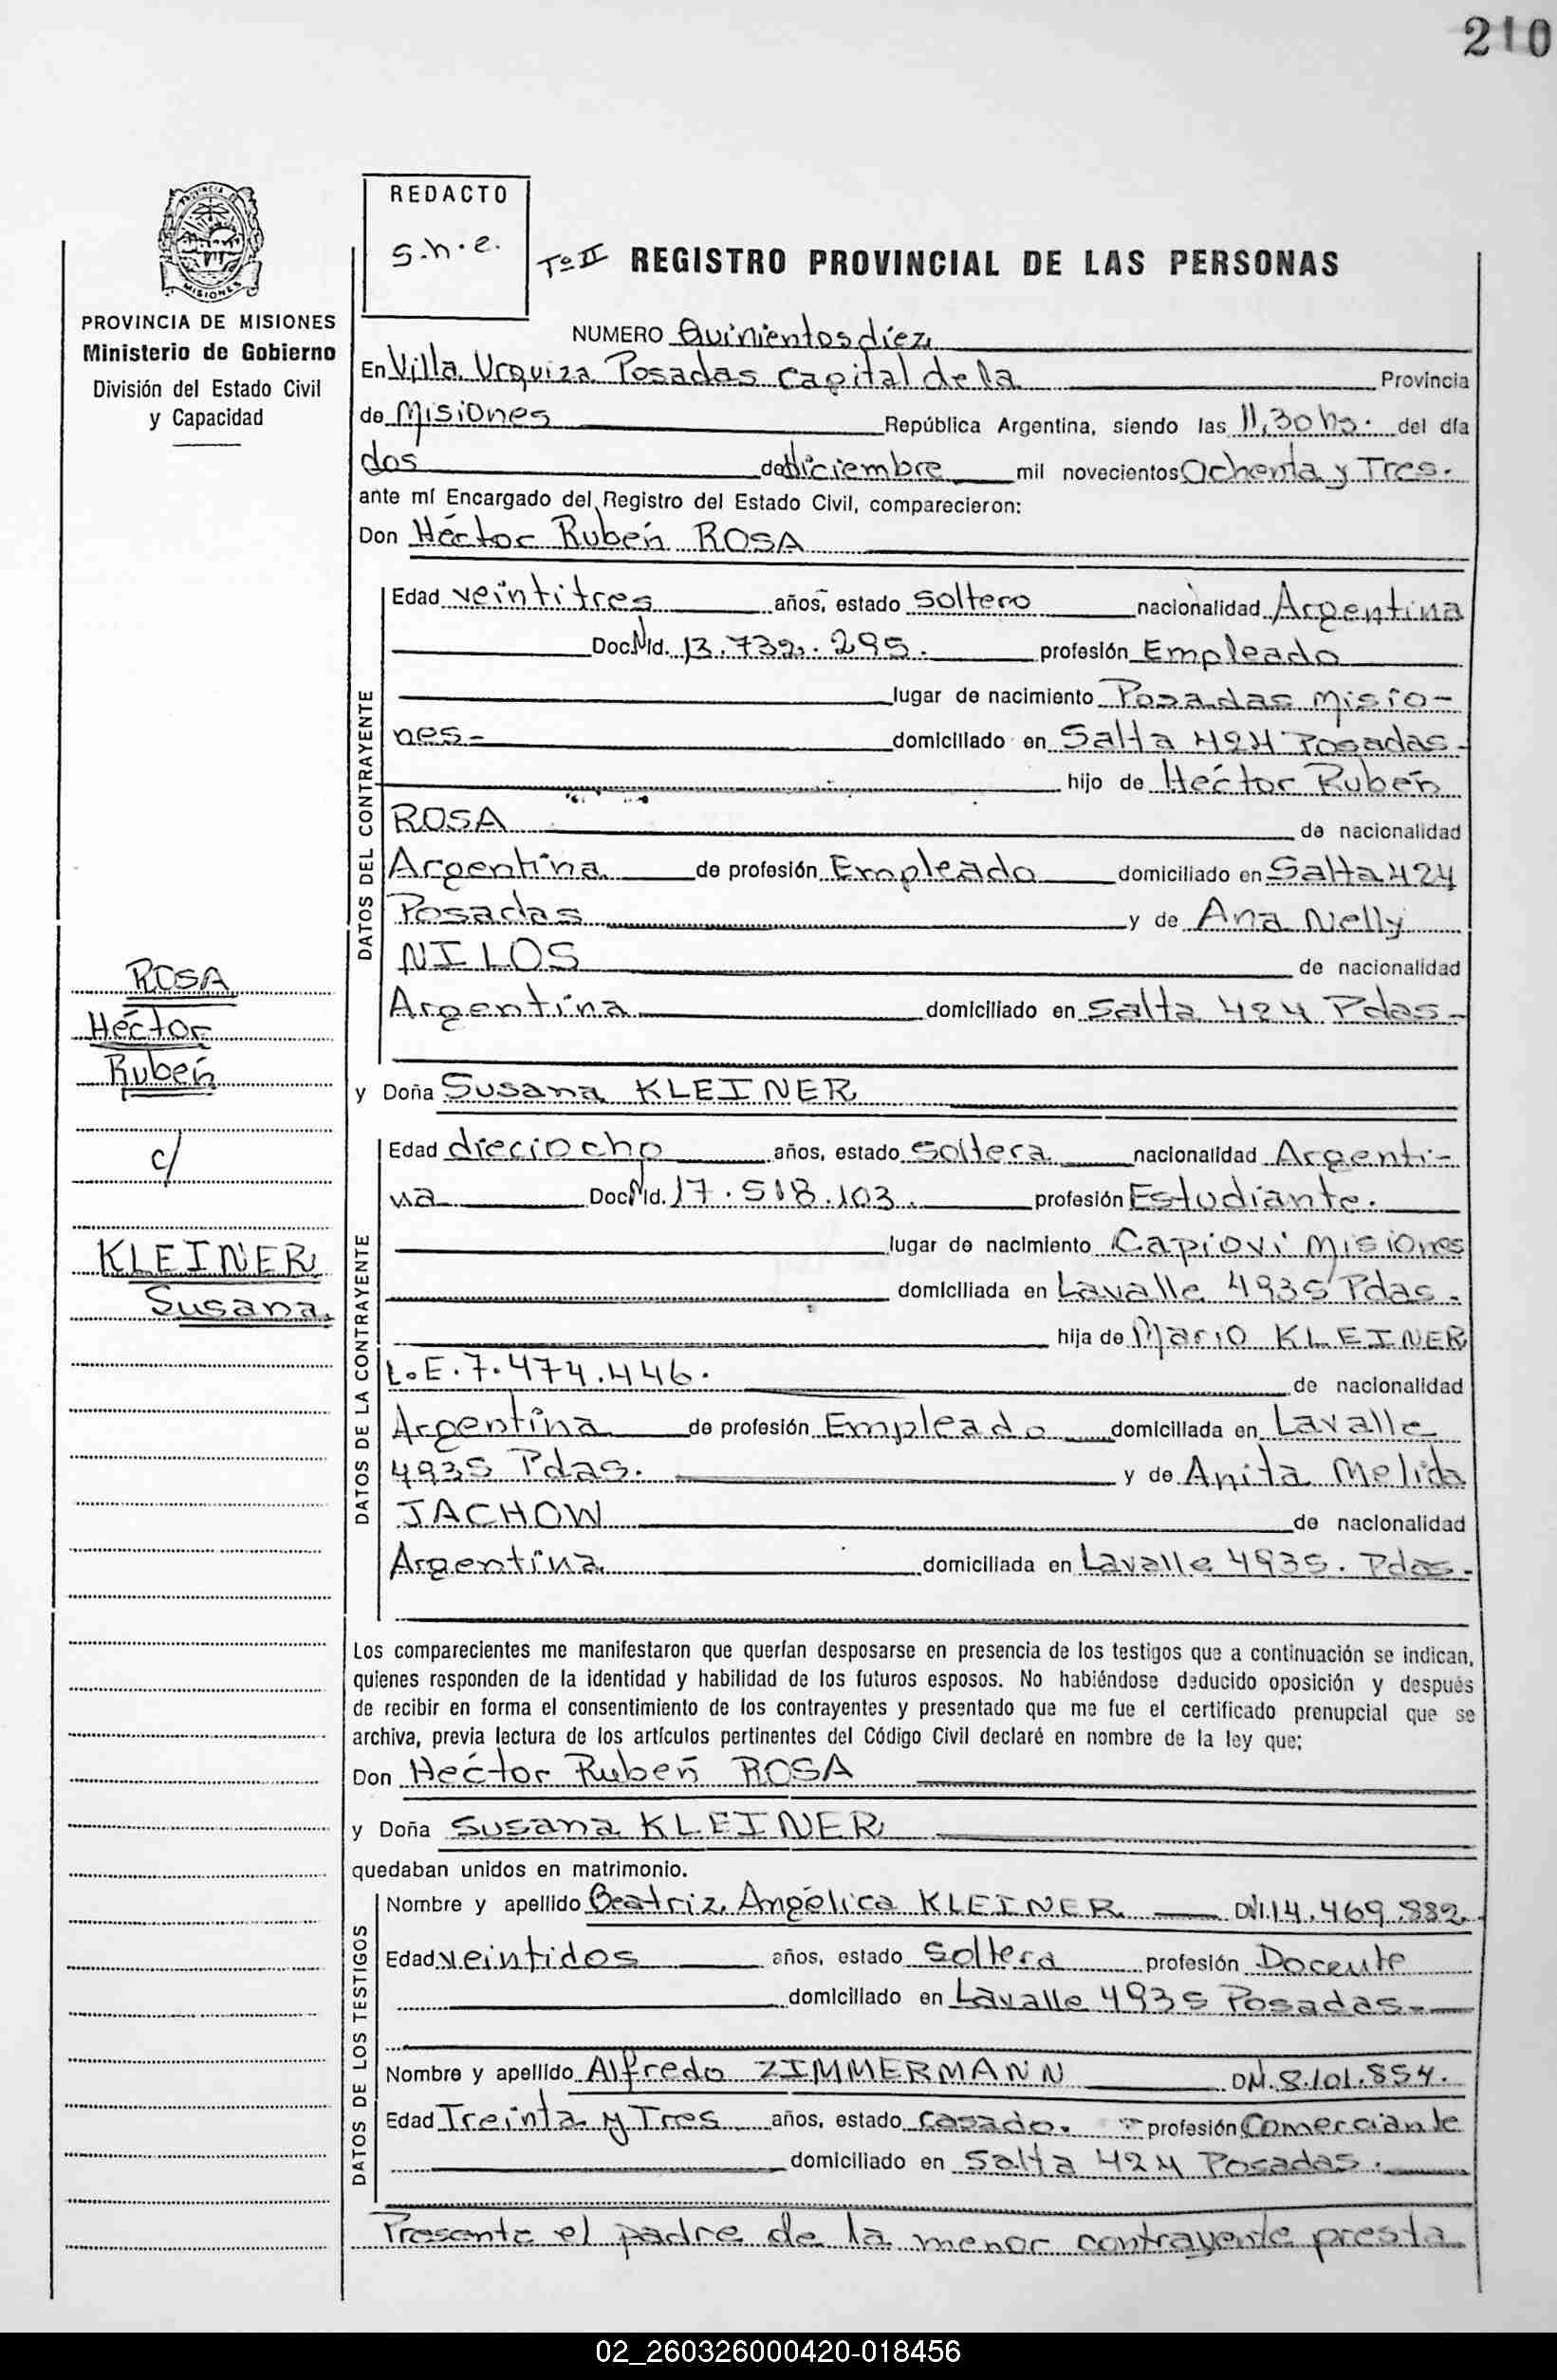 210
REDACTO
s.h.e.
Tº II REGISTRO PROVINCIAL DE LAS PERSONAS
PROVINCIA DE MISIONES
Ministerio de Gobierno
División del Estado Civil
y Capacidad
NUMERO Quinientos diez
En Villa Urquiza Posadas Capital de la Provincia
de Misiones República Argentina, siendo las 11,30 hs. del día
dos de diciembre mil novecientos Ochenta y Tres.
ante mí Encargado del Registro del Estado Civil, comparecieron:
Don Héctor Rubén ROSA
DATOS DEL CONTRAYENTE
Edad veintitres años, estado soltero nacionalidad Argentina
Doc. Nº Id. 13.732.295. profesión Empleado
lugar de nacimiento Posadas Misio-
nes- domiciliado en Salta 424 Posadas-
hijo de Héctor Rubén
ROSA de nacionalidad
Argentina de profesión Empleado domiciliado en Salta 424
Posadas y de Ana Nelly
NILOS de nacionalidad
Argentina domiciliado en Salta 424 Pdas-
ROSA
Héctor
Rubén
c/
KLEINER
Susana
y Doña Susana KLEINER
DATOS DE LA CONTRAYENTE
Edad dieciocho años, estado Soltera nacionalidad Argenti-
na Doc. Nº Id. 17.518.103. profesión Estudiante.
lugar de nacimiento Capioví Misiones
domiciliada en Lavalle 4935 Pdas.
hija de Mario KLEINER
L.E.7.474.446. de nacionalidad
Argentina de profesión Empleado domiciliada en Lavalle
4935 Pdas. y de Anita Melida
JACHOW de nacionalidad
Argentina domiciliada en Lavalle 4935. Pdas-
Los comparecientes me manifestaron que querían desposarse en presencia de los testigos que a continuación se indican,
quienes responden de la identidad y habilidad de los futuros esposos. No habiéndose deducido oposición y después
de recibir en forma el consentimiento de los contrayentes y presentado que me fue el certificado prenupcial que se
archiva, previa lectura de los artículos pertinentes del Código Civil declaré en nombre de la ley que;
Don Héctor Rubén ROSA
y Doña Susana KLEINER
quedaban unidos en matrimonio.
DATOS DE LOS TESTIGOS
Nombre y apellido Beatriz Angélica KLEINER DNI.14.469.882.
Edad veintidos años, estado Soltera profesión Docente
domiciliado en Lavalle 4935 Posadas-
Nombre y apellido Alfredo ZIMMERMANN DNI.8.101.854.
Edad Treinta y Tres años, estado casado. profesión Comerciante
domiciliado en Salta 424 Posadas.
Presente el padre de la menor contrayente presta
02_260326000420-018456